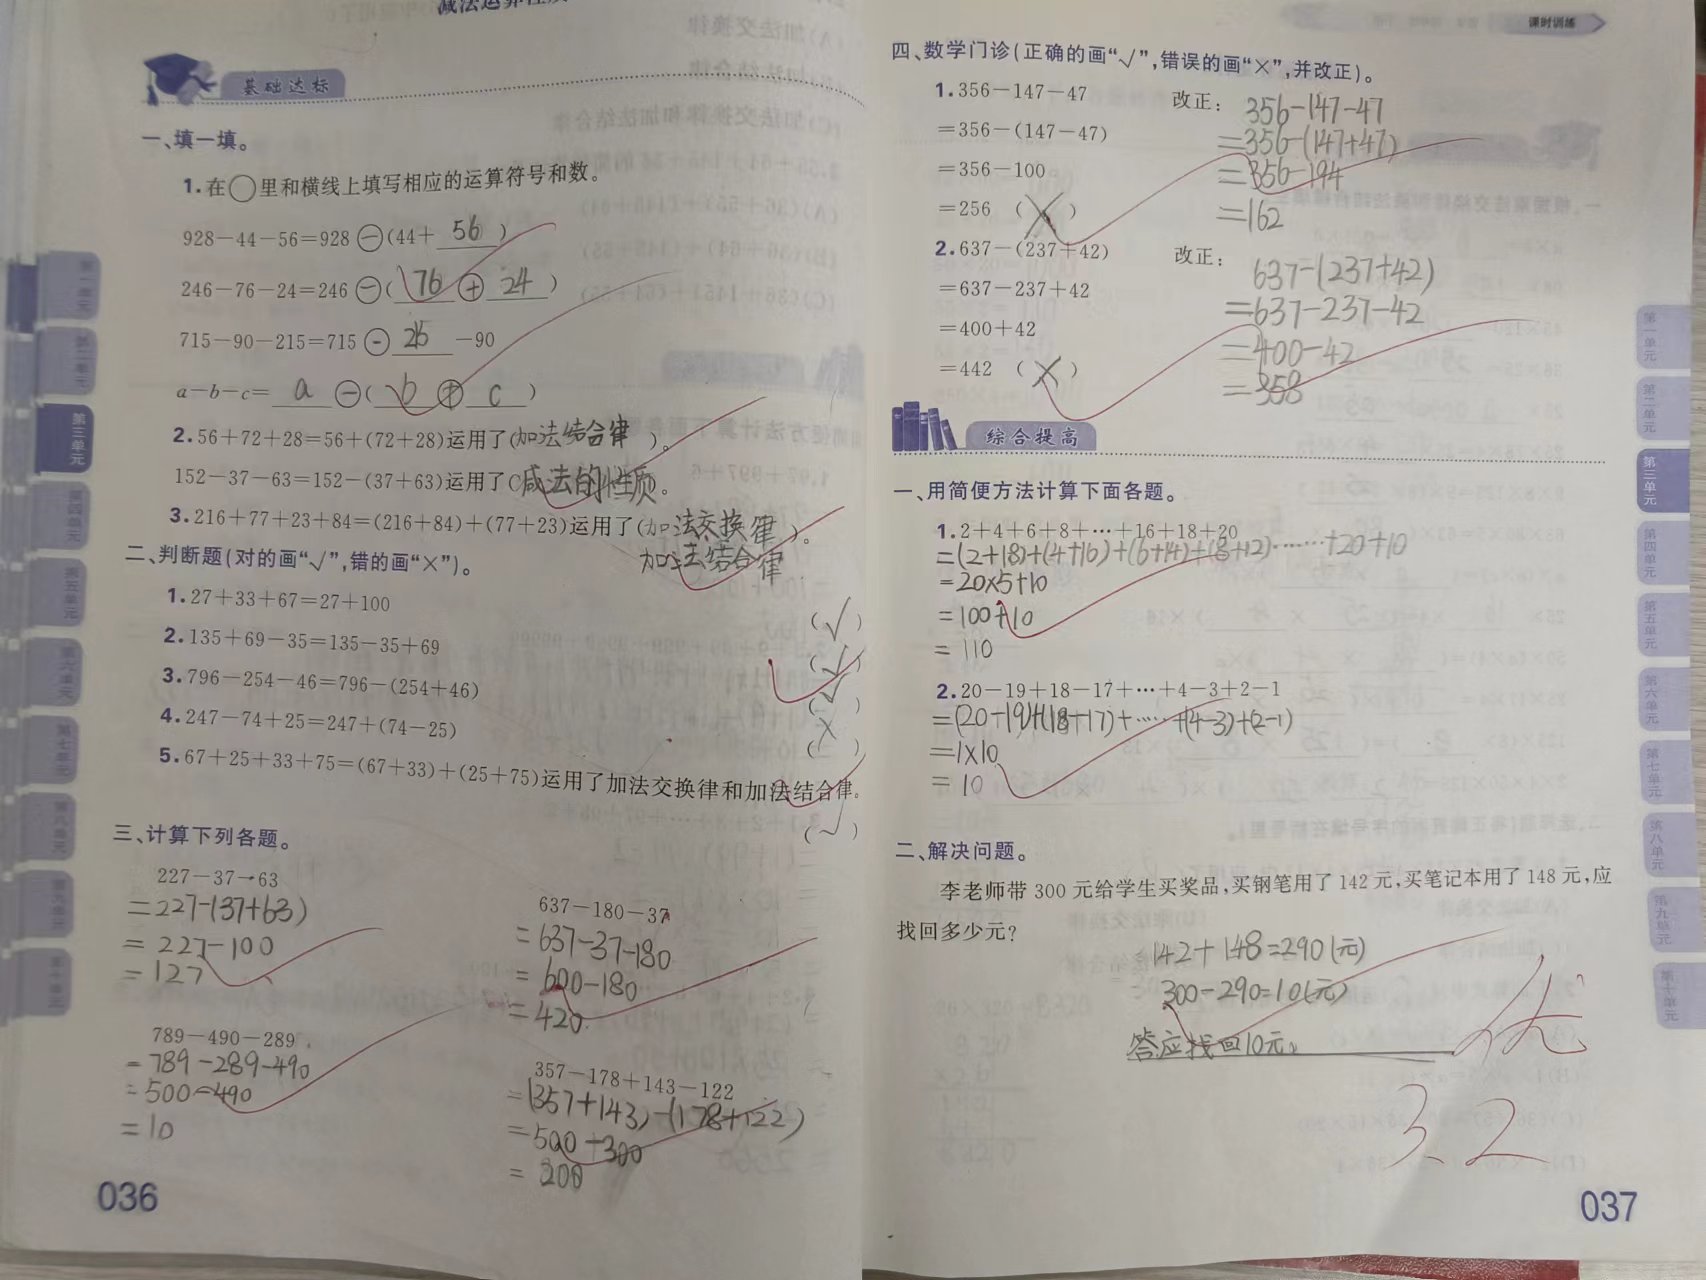 减法运算性质
基础达标
一、填一填。
1.在○里和横线上填写相应的运算符号和数。
928－44－56＝928 ⊖(44＋ 56 )
246－76－24＝246 ⊖( 76 ⊕ 24 )
715－90－215＝715 ⊖ 25 －90
a－b－c＝ a ⊖( b ⊕ c )
2.56＋72＋28＝56＋(72＋28)运用了(加法结合律 )。
152－37－63＝152－(37＋63)运用了(减法的性质。
3.216＋77＋23＋84＝(216＋84)＋(77＋23)运用了(加法交换律 )。
加法结合律
二、判断题(对的画“√”,错的画“×”)。
1.27＋33＋67＝27＋100
(√)
2.135＋69－35＝135－35＋69
(√)
3.796－254－46＝796－(254＋46)
(√)
4.247－74＋25＝247＋(74－25)
(×)
5.67＋25＋33＋75＝(67＋33)＋(25＋75)运用了加法交换律和加法结合律。
(√)
三、计算下列各题。
227－37－63
＝227－(37＋63)
＝227－100
＝127
637－180－37
＝637－37－180
＝600－180
＝420
789－490－289
＝789－289－490
＝500－490
＝10
357－178＋143－122
＝(357＋143)－(178＋122)
＝500－300
＝200
036
第一单元
第二单元
第三单元
第四单元
第五单元
第六单元
第七单元
第八单元
第九单元
第十单元
课时训练
四、数学门诊(正确的画“√”,错误的画“×”,并改正)。
1.356－147－47
＝356－(147－47)
＝356－100
＝256 (×)
改正:
356－147－47
＝356－(147＋47)
＝356－194
＝162
2.637－(237＋42)
＝637－237＋42
＝400＋42
＝442 (×)
改正:
637－(237＋42)
＝637－237－42
＝400－42
＝358
综合提高
一、用简便方法计算下面各题。
1.2＋4＋6＋8＋…＋16＋18＋20
＝(2＋18)＋(4＋16)＋(6＋14)＋(8＋12)……＋20＋10
＝20×5＋10
＝100＋10
＝110
2.20－19＋18－17＋…＋4－3＋2－1
＝(20－19)＋(18＋17)＋……＋(4－3)＋(2－1)
＝1×10
＝10
二、解决问题。
李老师带 300 元给学生买奖品,买钢笔用了 142 元,买笔记本用了 148 元,应
找回多少元?
142＋148＝290(元)
300－290＝10(元)
答应找回10元。
3.2
037
第一单元
第二单元
第三单元
第四单元
第五单元
第六单元
第七单元
第八单元
第九单元
第十单元